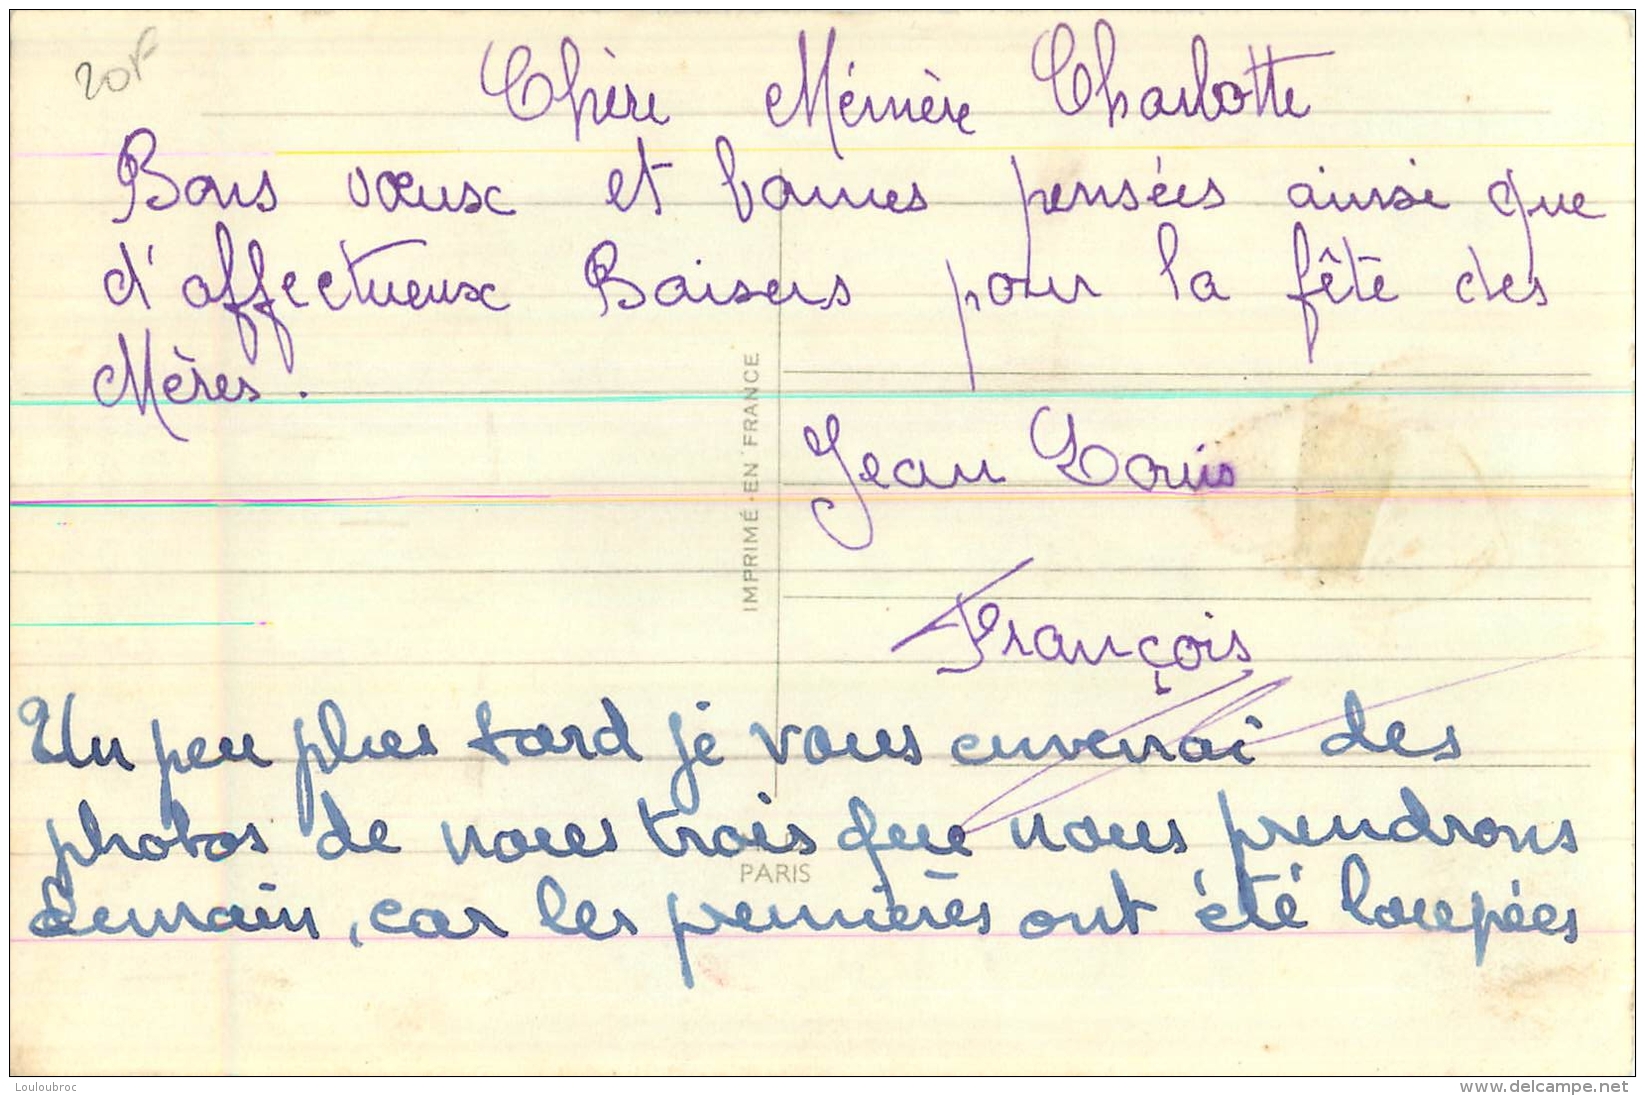 20F
Chère Mémère Charlotte
Bons vœux et bonnes pensées ainsi que
d'affectueux Baisers pour la fête des
Mères.
Jean Louis
François
Un peu plus tard je vous enverrai des
photos de nous trois que nous prendrons
demain, car les premières ont été loupées
IMPRIMÉ EN FRANCE
PARIS
Louloubroc
www.delcampe.net